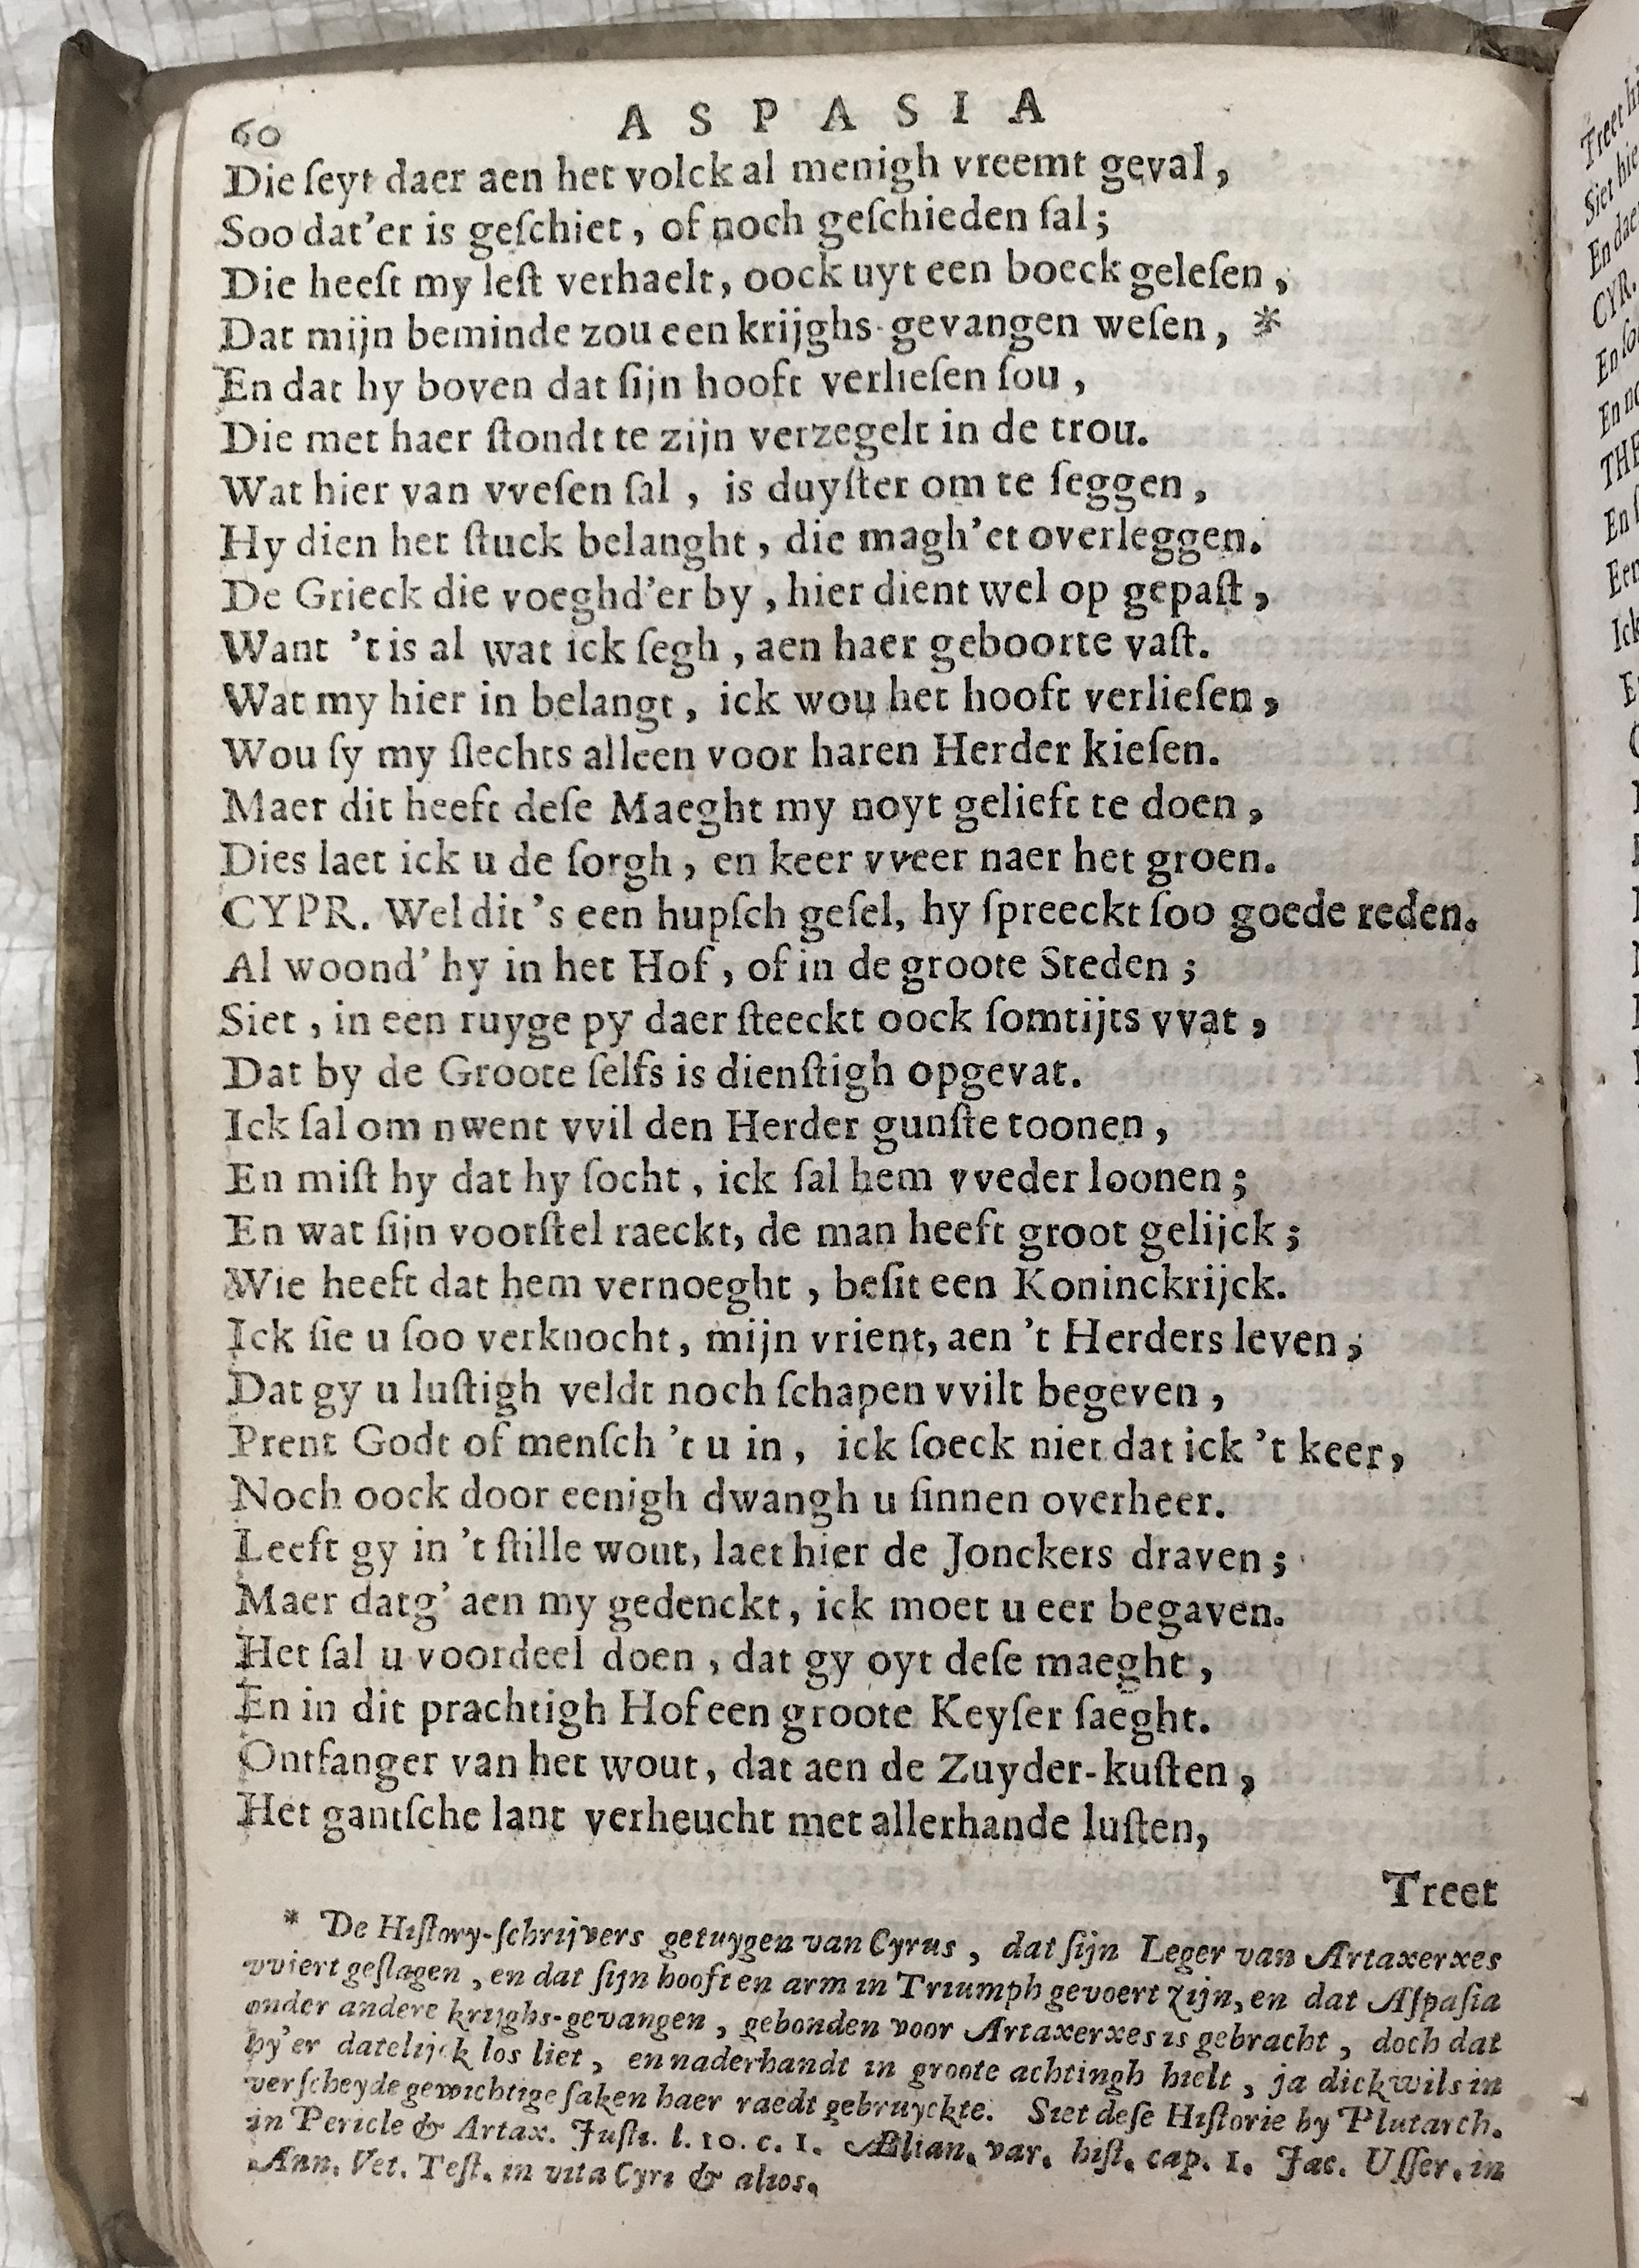 60 ASPASIA
Die ſeyt daer aen het volck al menigh vreemt geval,
Soo dat'er is geſchiet, of noch geſchieden ſal;
Die heeft my leſt verhaelt, oock uyt een boeck geleſen,
Dat mijn beminde zou een krijghs-gevangen weſen, *
En dat hy boven dat ſijn hooft verlieſen ſou,
Die met haer ſtondt te zijn verzegelt in de trou.
Wat hier van vveſen ſal, is duyſter om te ſeggen,
Hy dien het ſtuck belanght, die magh'et overleggen.
De Grieck die voeghd'er by, hier dient wel op gepaſt,
Want 't is al wat ick ſegh, aen haer geboorte vaſt.
Wat my hier in belangt, ick wou het hooft verlieſen,
Wou ſy my ſlechts alleen voor haren Herder kieſen.
Maer dit heeft deſe Maeght my noyt gelieft te doen,
Dies laet ick u de ſorgh, en keer vveer naer het groen.
CYPR. Wel dit's een hupſch geſel, hy ſpreeckt ſoo goede reden.
Al woond' hy in het Hof, of in de groote Steden;
Siet, in een ruyge py daer ſteeckt oock ſomtijts vvat,
Dat by de Groote ſelfs is dienſtigh opgevat.
Ick ſal om nwent vvil den Herder gunſte toonen,
En miſt hy dat hy ſocht, ick ſal hem vveder loonen;
En wat ſijn voorſtel raeckt, de man heeft groot gelijck;
Wie heeft dat hem vernoeght, beſit een Koninckrijck.
Ick ſie u ſoo verknocht, mijn vrient, aen 't Herders leven,
Dat gy u luſtigh veldt noch ſchapen vvilt begeven,
Prent Godt of menſch 't u in, ick ſoeck niet dat ick 't keer,
Noch oock door eenigh dwangh u ſinnen overheer.
Leeft gy in 't ſtille wout, laet hier de Jonckers draven;
Maer datg' aen my gedenckt, ick moet u eer begaven.
Het ſal u voordeel doen, dat gy oyt deſe maeght,
En in dit prachtigh Hof een groote Keyſer ſaeght.
Ontfanger van het wout, dat aen de Zuyder-kuſten,
Het gantſche lant verheucht met allerhande luſten,
Treet
* De Hiſtory-ſchrijvers getuygen van Cyrus, dat ſijn Leger van Artaxerxes
vviert geſlagen, en dat ſijn hooft en arm in Triumph gevoert zijn, en dat Aſpaſia
onder andere krijghs-gevangen, gebonden voor Artaxerxes is gebracht, doch dat
hy'er datelijck los liet, en naderhandt in groote achtingh hielt, ja dickwils in
verſcheyde gewichtige ſaken haer raedt gebruyckte. Siet deſe Hiſtorie by Plutarch.
in Pericle & Artax. Juſt. l. 10. c. 1. Ælian. var. hiſt. cap. 1. Jac. Uſſer. in
Ann. Vet. Teſt. in vita Cyri & alios.